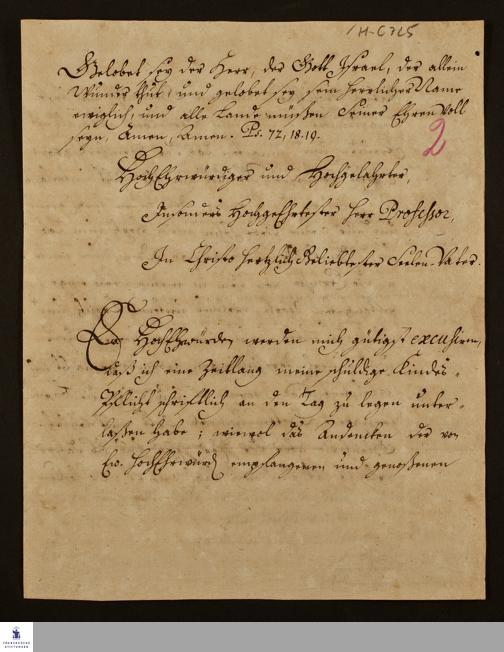 1H-C725
Gelobet sey der Herr, der Gott Israel, der allein
Wunder thut, und gelobet sey sein herrlicher Name
ewiglich, und alle Lande müßen seiner Ehren voll
seyn, Amen, Amen. Ps. 72, 18.19.
2
HochEhrwürdiger und Hochgelahrter,
Insonders Hochgeehrtester Herr Professor,
In Christo hertzlich Geliebtester Seelen-Vater.
Ew. HochEhrwürden werden mich gütigst excusiren,
daß ich eine Zeitlang meine schuldige Kindes-
Pflicht schriftlich an den Tag zu legen unter-
laßen habe; wiewol das Andencken der von
Ew. HochEhrwürd. empfangenen und genoßenen
FRANCKESCHE
STIFTUNGEN